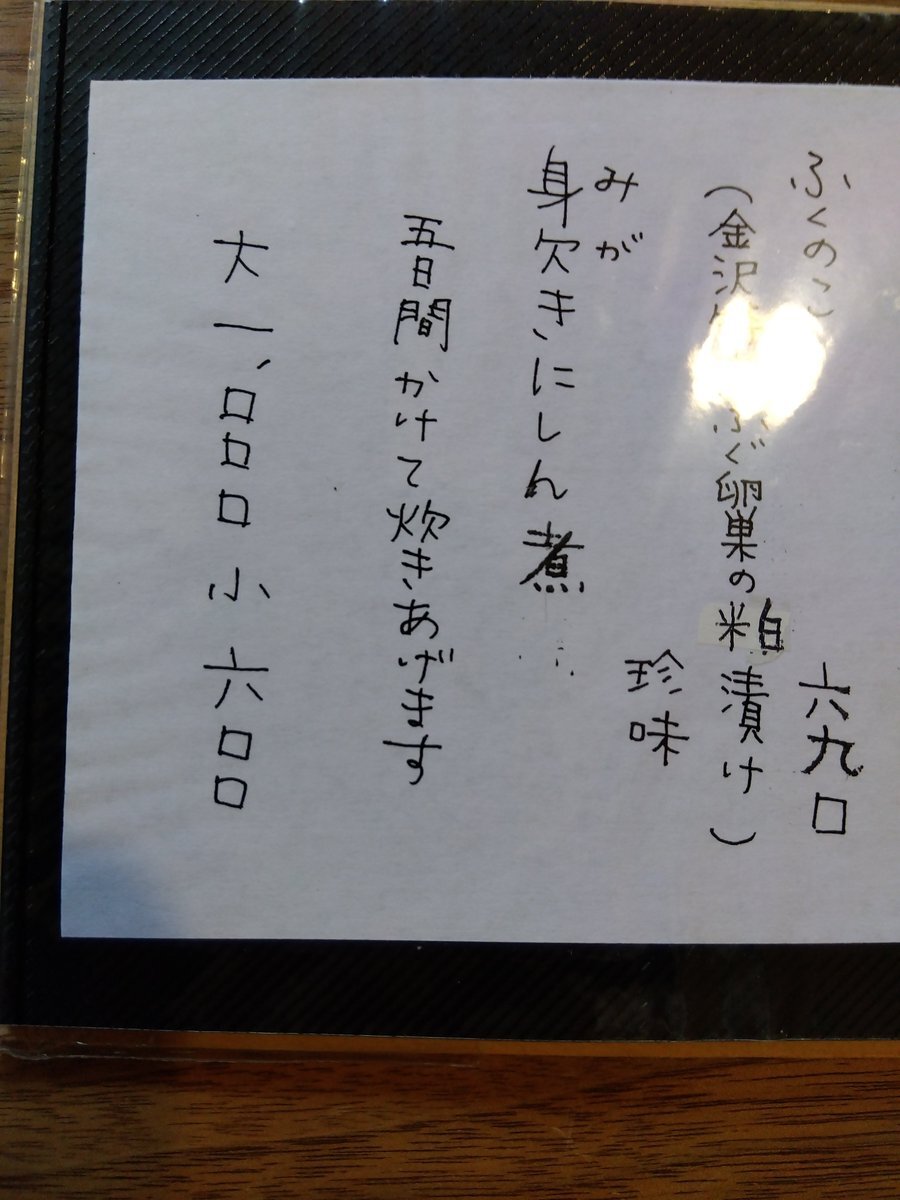 ふくのこ 六九〇
(金沢 ふぐ卵巣の粕漬け)
珍味
みが
身欠きにしん煮
五日間かけて炊きあげます
大 一、〇〇〇 小 六〇〇